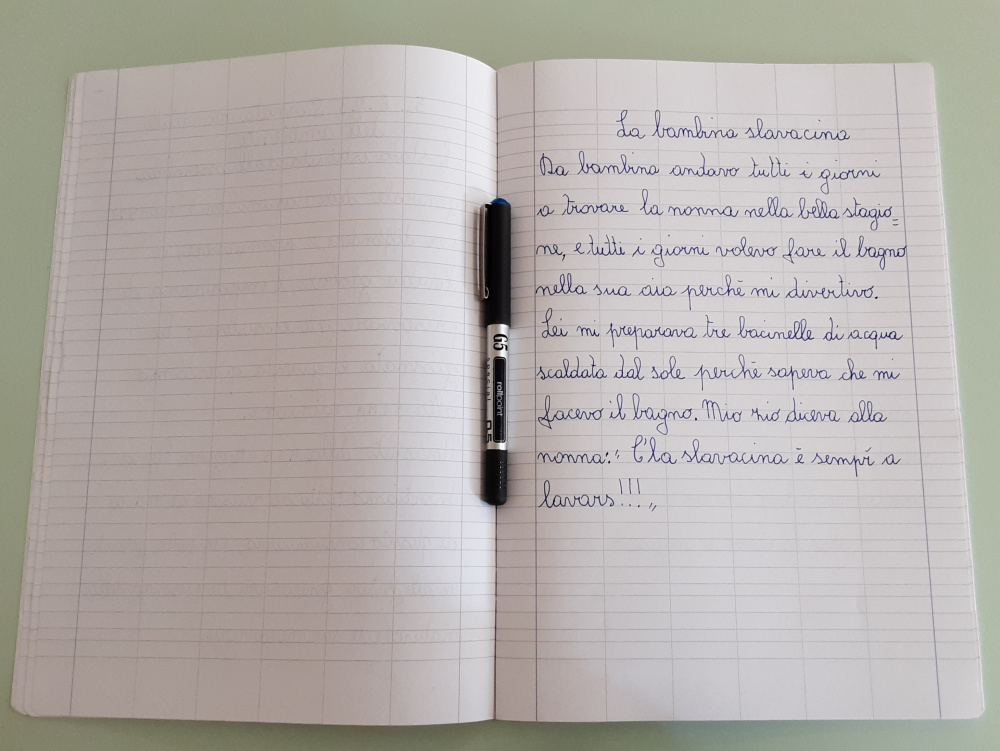 La bambina slavacina
Da bambina andavo tutti i giorni
a trovare la nonna nella bella stagio=
ne, e tutti i giorni volevo fare il bagno
nella sua aia perchè mi divertivo.
Lei mi preparava tre bacinelle di acqua
scaldata dal sole perchè sapeva che mi
facevo il bagno. Mio zio diceva alla
nonna: " C'la slavacina è sempr a
lavars!!! "
G5
rollpoint
0.5